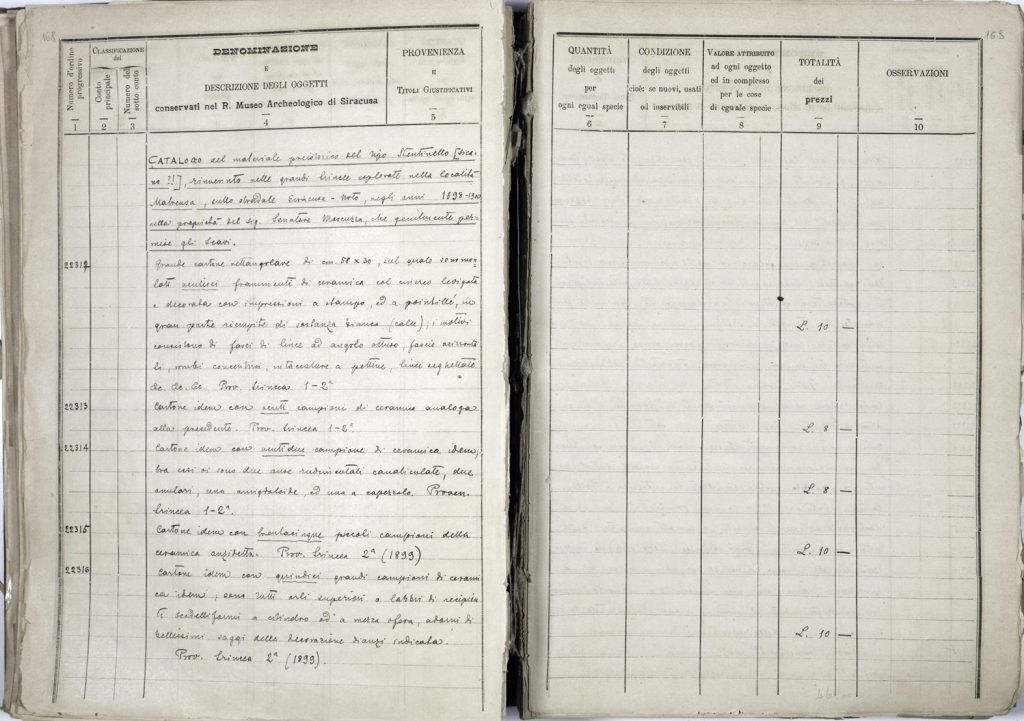 168
Numero d'ordine progressivo
1
CLASSIFICAZIONE del
Conto principale
2
Numero del sotto conto
3
DENOMINAZIONE
E
DESCRIZIONE DEGLI OGGETTI
conservati nel R. Museo Archeologico di Siracusa
4
PROVENIENZA
E
TITOLI GIUSTIFICATIVI
5
CATALOGO del materiale preistorico del tipo Stentinello [sica-
no ?!], rinvenuto nelle grandi trincee esplorate nella località
Matrensa, sullo stradale Siracusa-Noto, negli anni 1898-1900
nella proprietà del Sig. Senatore Moscuzza, che gentilmente per-
mise gli scavi.
22312
Grande cartone rettangolare di cm. 58 x 30, sul quale sono mon-
tati ventisei frammenti di ceramica col cinereo levigata
e decorata con impressioni a stampo, ed a pointillé, in
gran parte riempite di sostanza bianca (calce); i motivi
consistono di fasci di linee ad angolo ottuso, fascie orizzonta
li, rombi concentrici, intaccature a pettine, linee seghettate
&c. &c. &c. Prov. trincea 1-2ª
22313
Cartone idem con venti campioni di ceramica analoga
alla precedente. Prov. trincea 1-2ª.
22314
Cartone idem con ventidue campione di ceramica idem;
tra essi vi sono due anse rudimentali canaliculate, due
anulari, una amigdaloide, ed una a capezzolo. Proven.
trincea 1-2ª.
22315
Cartone idem con trentacinque piccoli campioni della
ceramica anzidetta. Prov. trincea 2ª (1899)
22316
Cartone idem con quindici grandi campioni di cerami
ca idem; sono tutti orli superiori o labbri di recipien
ti scodelliformi a cilindro ed a mezza sfera, adorni di
bellissimi saggi della decorazione dianzi indicata.
Prov. trincea 2ª (1899).
168
QUANTITÀ
degli oggetti
per
ogni egual specie
6
CONDIZIONE
degli oggetti
cioè: se nuovi, usati
od inservibili
7
VALORE ATTRIBUITO
ad ogni oggetto
ed in complesso
per le cose
di eguale specie
8
TOTALITÀ
dei
prezzi
9
OSSERVAZIONI
10
L. 10 —
L. 8 —
L. 8 —
L. 10 —
L. 10 —
46